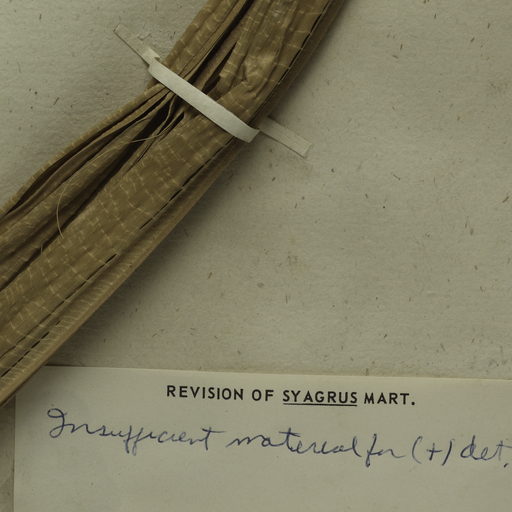 REVISION OF SYAGRUS MART.
Insufficient material for (+) det.